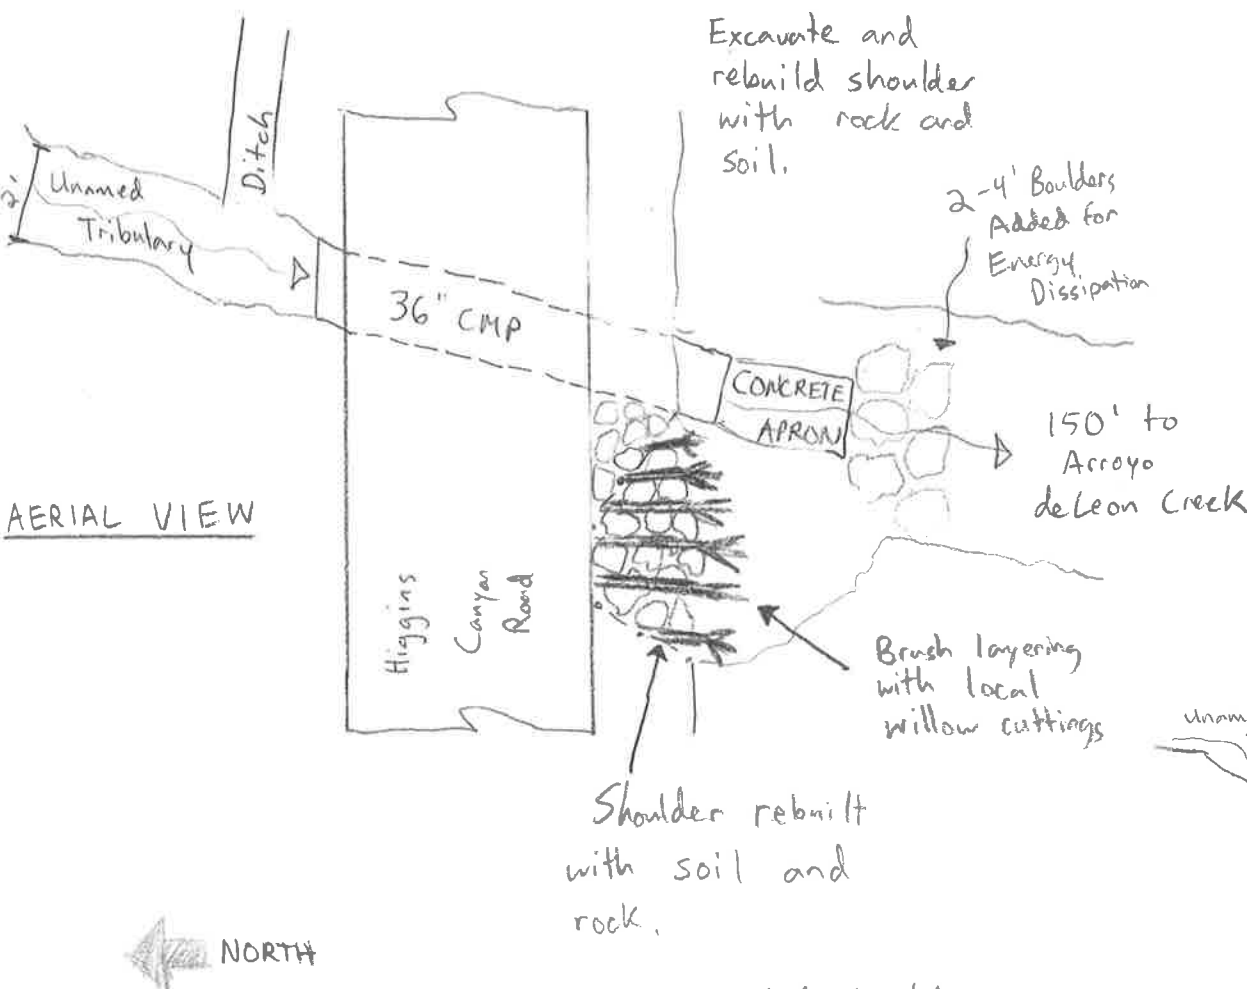 Excavate and
rebuild shoulder
with rock and
soil.
Ditch
2'
Unnamed
Tributary
2-4' Boulders
Added for
Energy
Dissipation
36" CMP
CONCRETE
APRON
150' to
Arroyo
de Leon Creek
AERIAL VIEW
Higgins
Canyon
Road
Brush layering
with local
willow cuttings
Unnam
Shoulder rebuilt
with soil and
rock.
NORTH